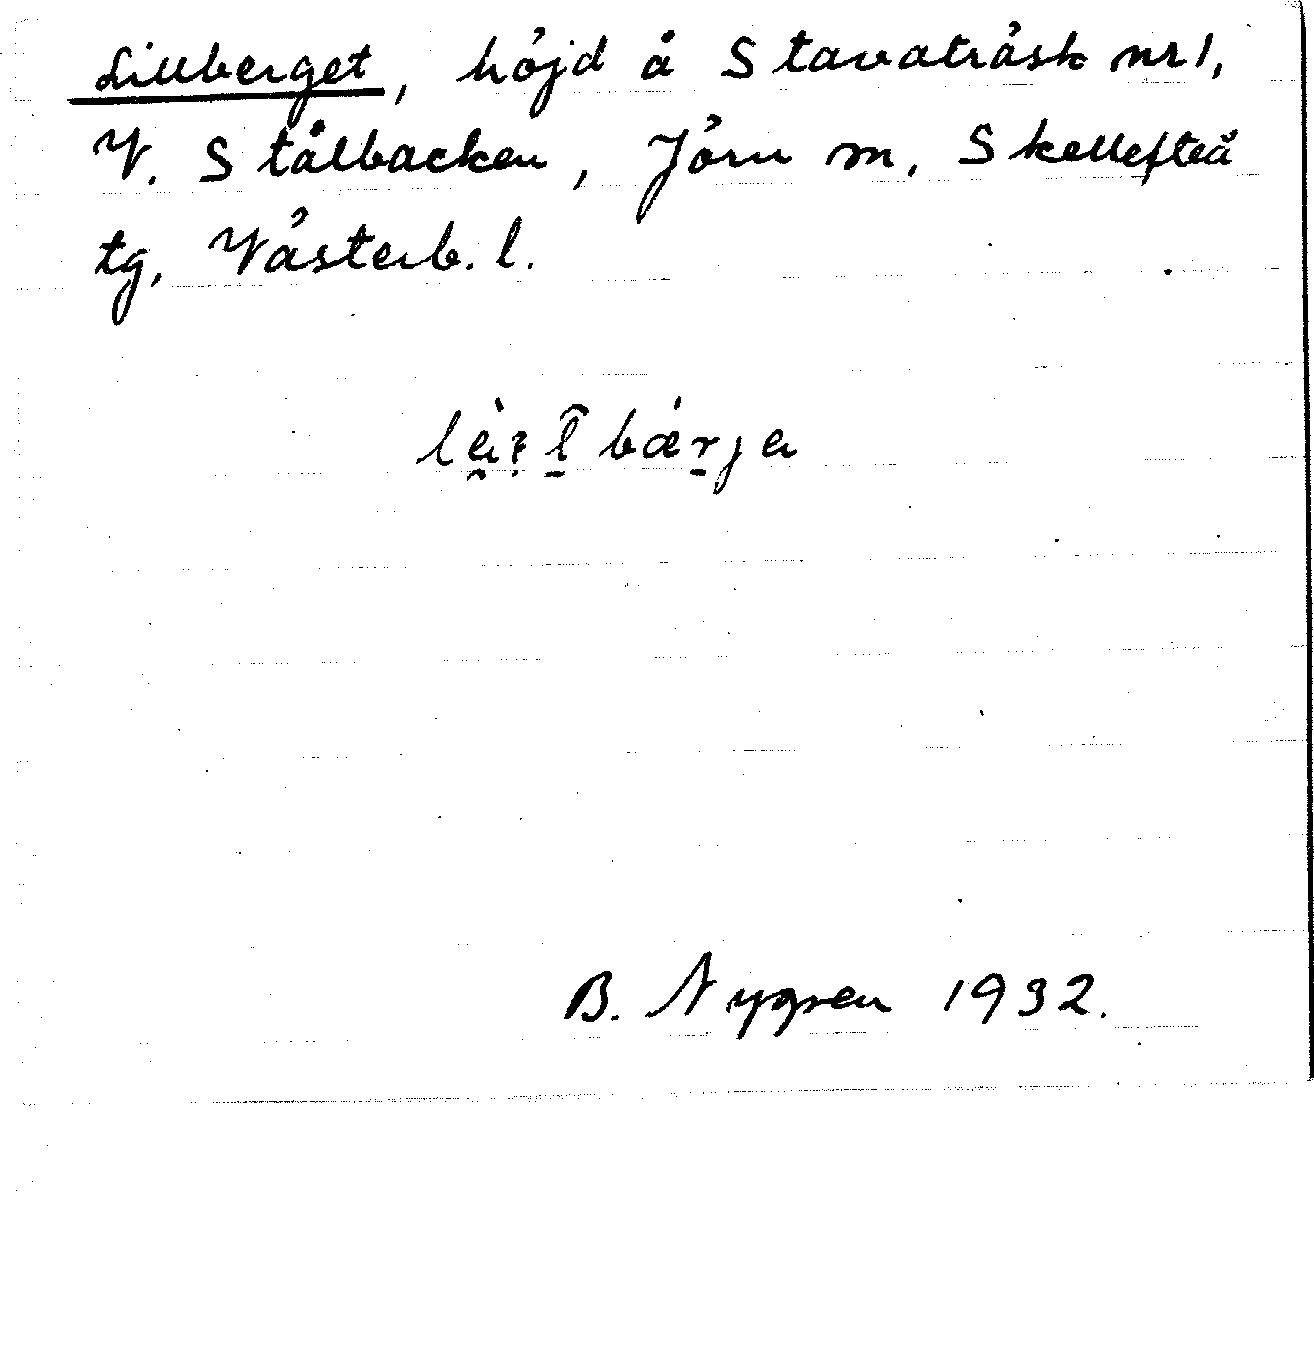 Lillberget, höjd å Stavaträsk nr 1,
V. Stålbacken, Jörn sn, Skellefteå
tg, Västerb. l.
B. Nygren 1932.